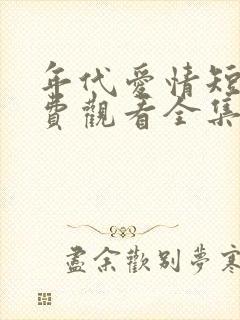 年代愛情短
費觀看全集
盡余歡別夢寒